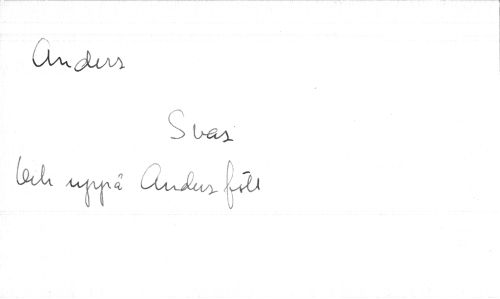 Anders
Svar
Och uppå Anders föll